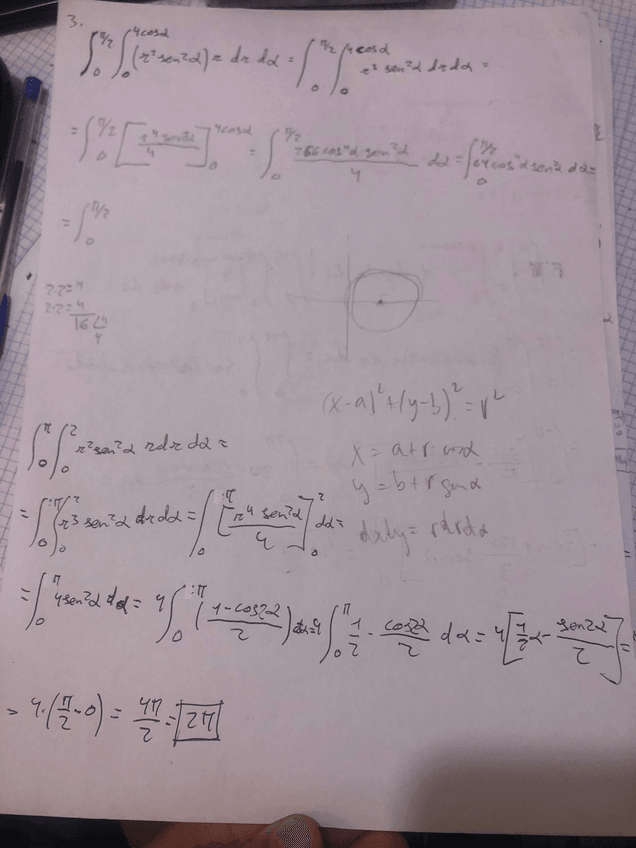 3.
∫₀^{π/2} ∫₀^{4cosα} (r² sen²α) r dr dα = ∫₀^{π/2} ∫₀^{4cosα} r² sen²α dr dα =
= ∫₀^{π/2} [r⁴ sen²α / 4]₀^{4cosα} = ∫₀^{π/2} 256 cos⁴α sen²α / 4 dα = ∫₀^{π/2} 64 cos⁴α sen²α dα =
= ∫₀^{π/2}
2·2=4
2·2=4
16 4
4
(x-a)² + (y-b)² = r²
x = a + r cosα
y = b + r senα
dxdy = r dr dα
∫₀^π ∫₀² r² sen²α r dr dα =
= ∫₀^π ∫₀² r³ sen²α dr dα = ∫₀^π [r⁴ sen²α / 4]₀² dα =
= ∫₀^π 4 sen²α dα = 4 ∫₀^π (1-cos2α / 2) dα = 4 ∫₀^π 1/2 - cos2α / 2 dα = 4 [1/2 α - sen2α / 2] =
= 4·(π/2 - 0) = 4π/2 = 2π